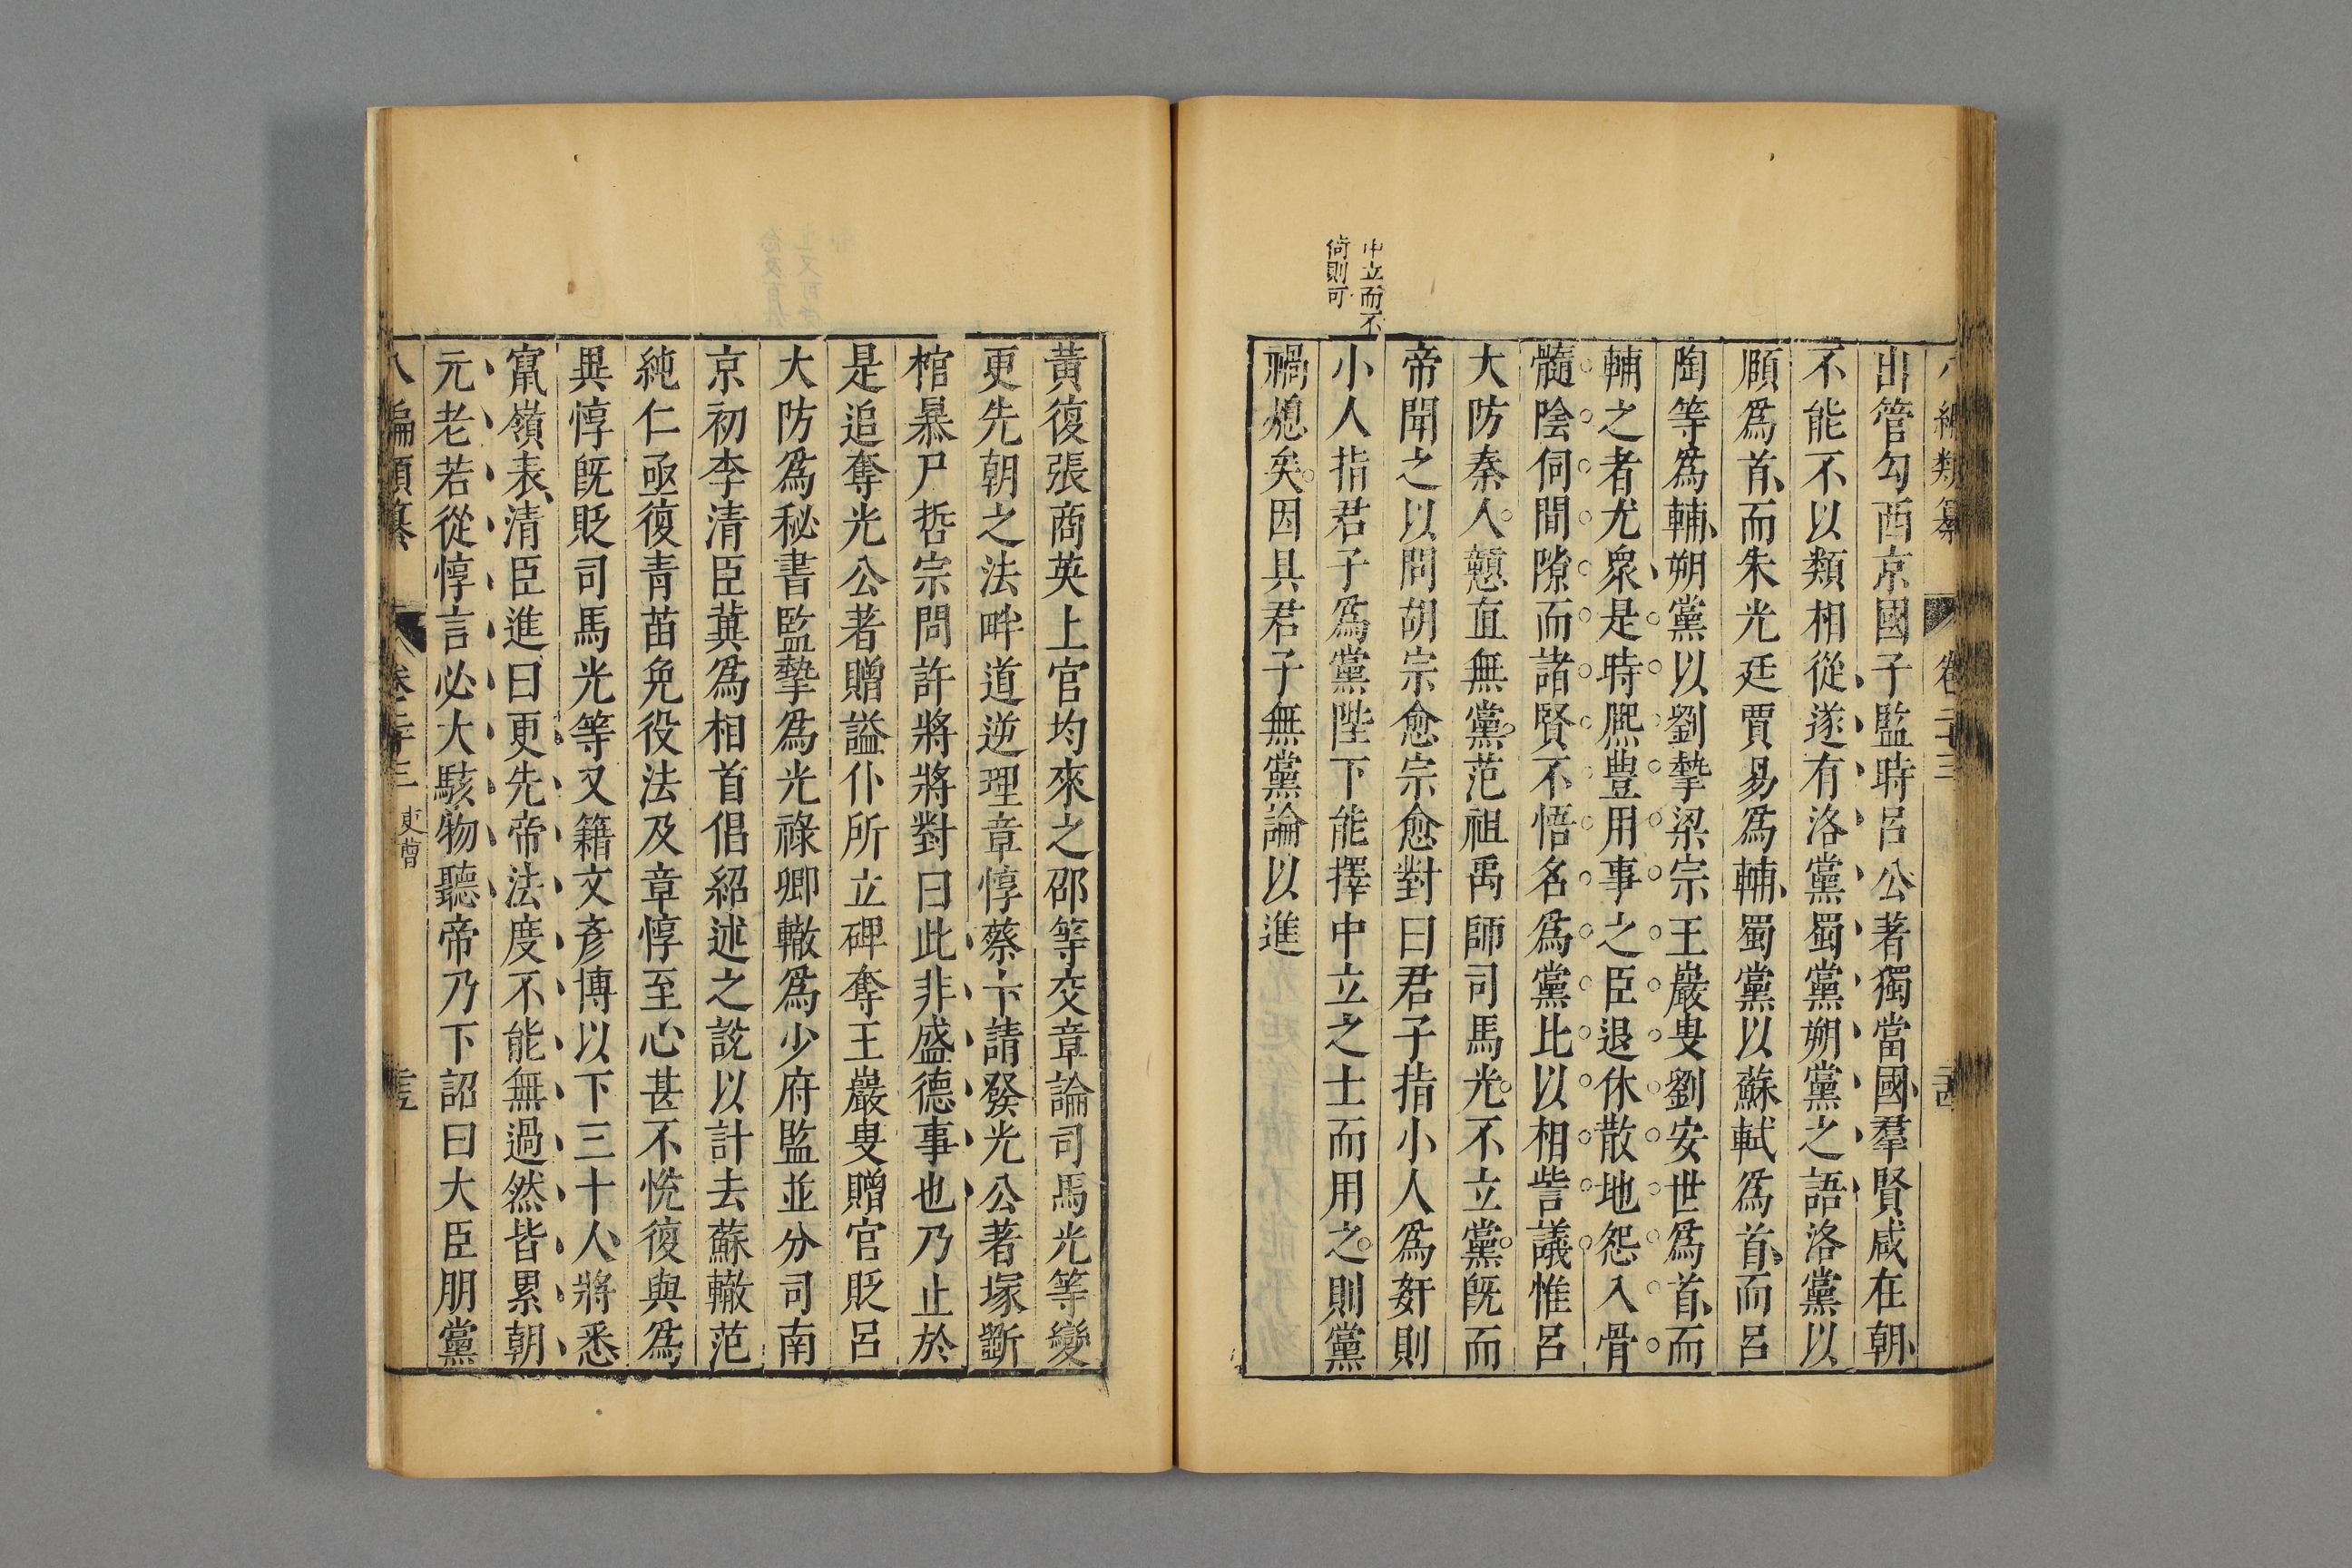 八編類纂 卷二十三 二十四
出管勾西京國子監時呂公著獨當國羣賢咸在朝
不能不以類相從遂有洛黨蜀黨朔黨之語洛黨以
頤爲首而朱光廷賈易爲輔蜀黨以蘇軾爲首而呂
陶等爲輔朔黨以劉摯梁宗王巖叟劉安世爲首而
輔之者尤衆是時熈豊用事之臣退休散地怨入骨
髓陰伺間隙而諸賢不悟各爲黨比以相訾議惟呂
大防秦人戇直無黨范祖禹師司馬光不立黨既而
帝聞之以問胡宗愈宗愈對曰君子指小人爲姧則
小人指君子爲黨陛下能擇中立之士而用之則黨
禍熄矣因具君子無黨論以進
中立而不
倚則可
黃復張商英上官均來之邵等交章論司馬光等變
更先朝之法畔道逆理章惇蔡卞請發光公著塚斲
棺暴尸哲宗問許將將對曰此非盛德事也乃止於
是追奪光公著贈謚仆所立碑奪王巖叟贈官貶呂
大防爲秘書監摯爲光祿卿轍爲少府監並分司南
京初李清臣冀爲相首倡紹述之說以計去蘇轍范
純仁亟復青苗免役法及章惇至心甚不悅復與爲
異惇既貶司馬光等又籍文彥博以下三十人將悉
竄嶺表清臣進曰更先帝法度不能無過然皆累朝
元老若從惇言必大駭物聽帝乃下詔曰大臣朋黨
八編類纂 卷二十三 吏曹 二十五